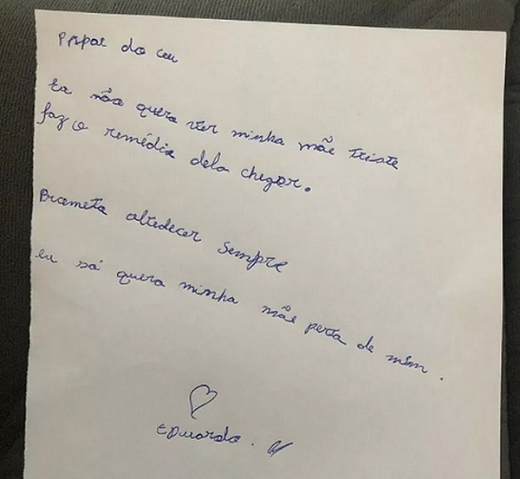 Papai do ceu
Eu não quero ver minha mãe triste
faz o remédio dela chegar.
Prometo obedecer sempre
eu só quero minha mãe perto de mim.
Eduardo.